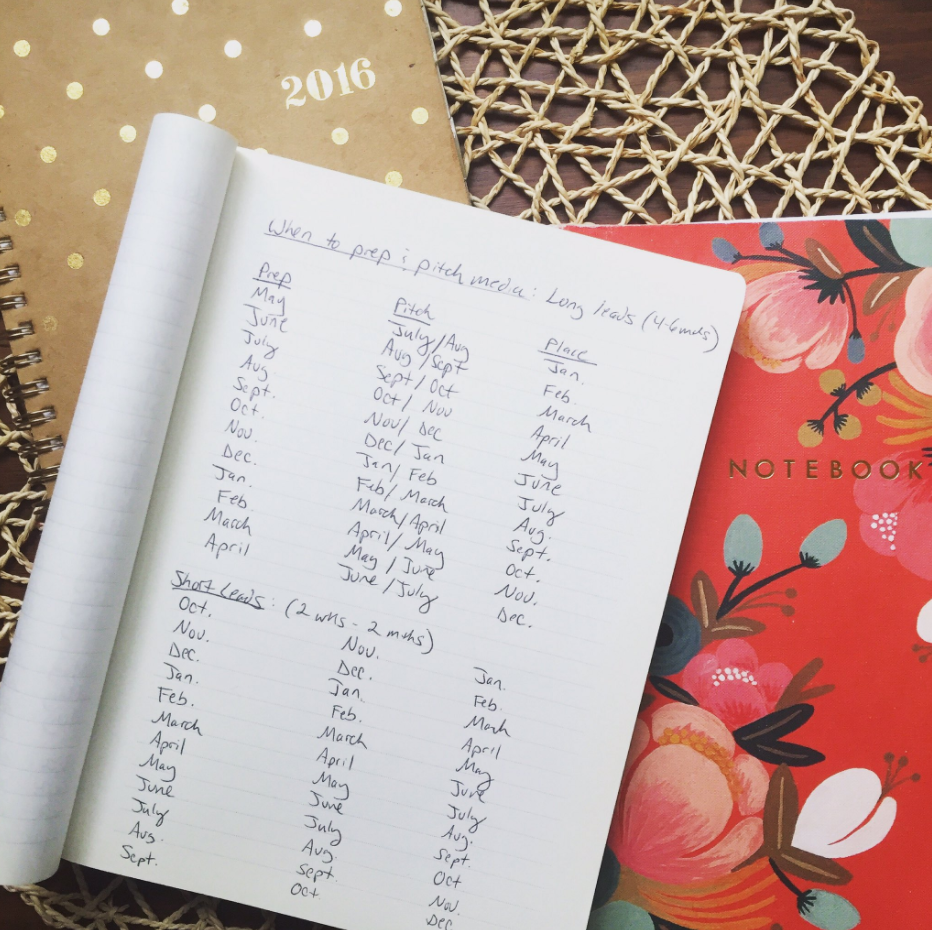 2016
When to prep & pitch media: Long leads (4-6 mths)
Prep Pitch Place
May July/Aug Jan.
June Aug/Sept Feb.
July Sept/Oct March
Aug Oct/Nov April
Sept. Nov/Dec May
Oct. Dec/Jan June
Nov. Jan/Feb July
Dec. Feb/March Aug.
Jan. March/April Sept.
Feb. April/May Oct.
March May/June Nov.
April June/July Dec.
Short Leads: (2 wks - 2 mths)
Oct. Nov. Jan.
Nov. Dec. Feb.
Dec. Jan. March
Jan. Feb. April
Feb. March May
March April June
April May July
May June Aug.
June July Sept
July Aug. Oct
Aug. Sept. Nov.
Sept. Oct Dec
NOTEBOOK